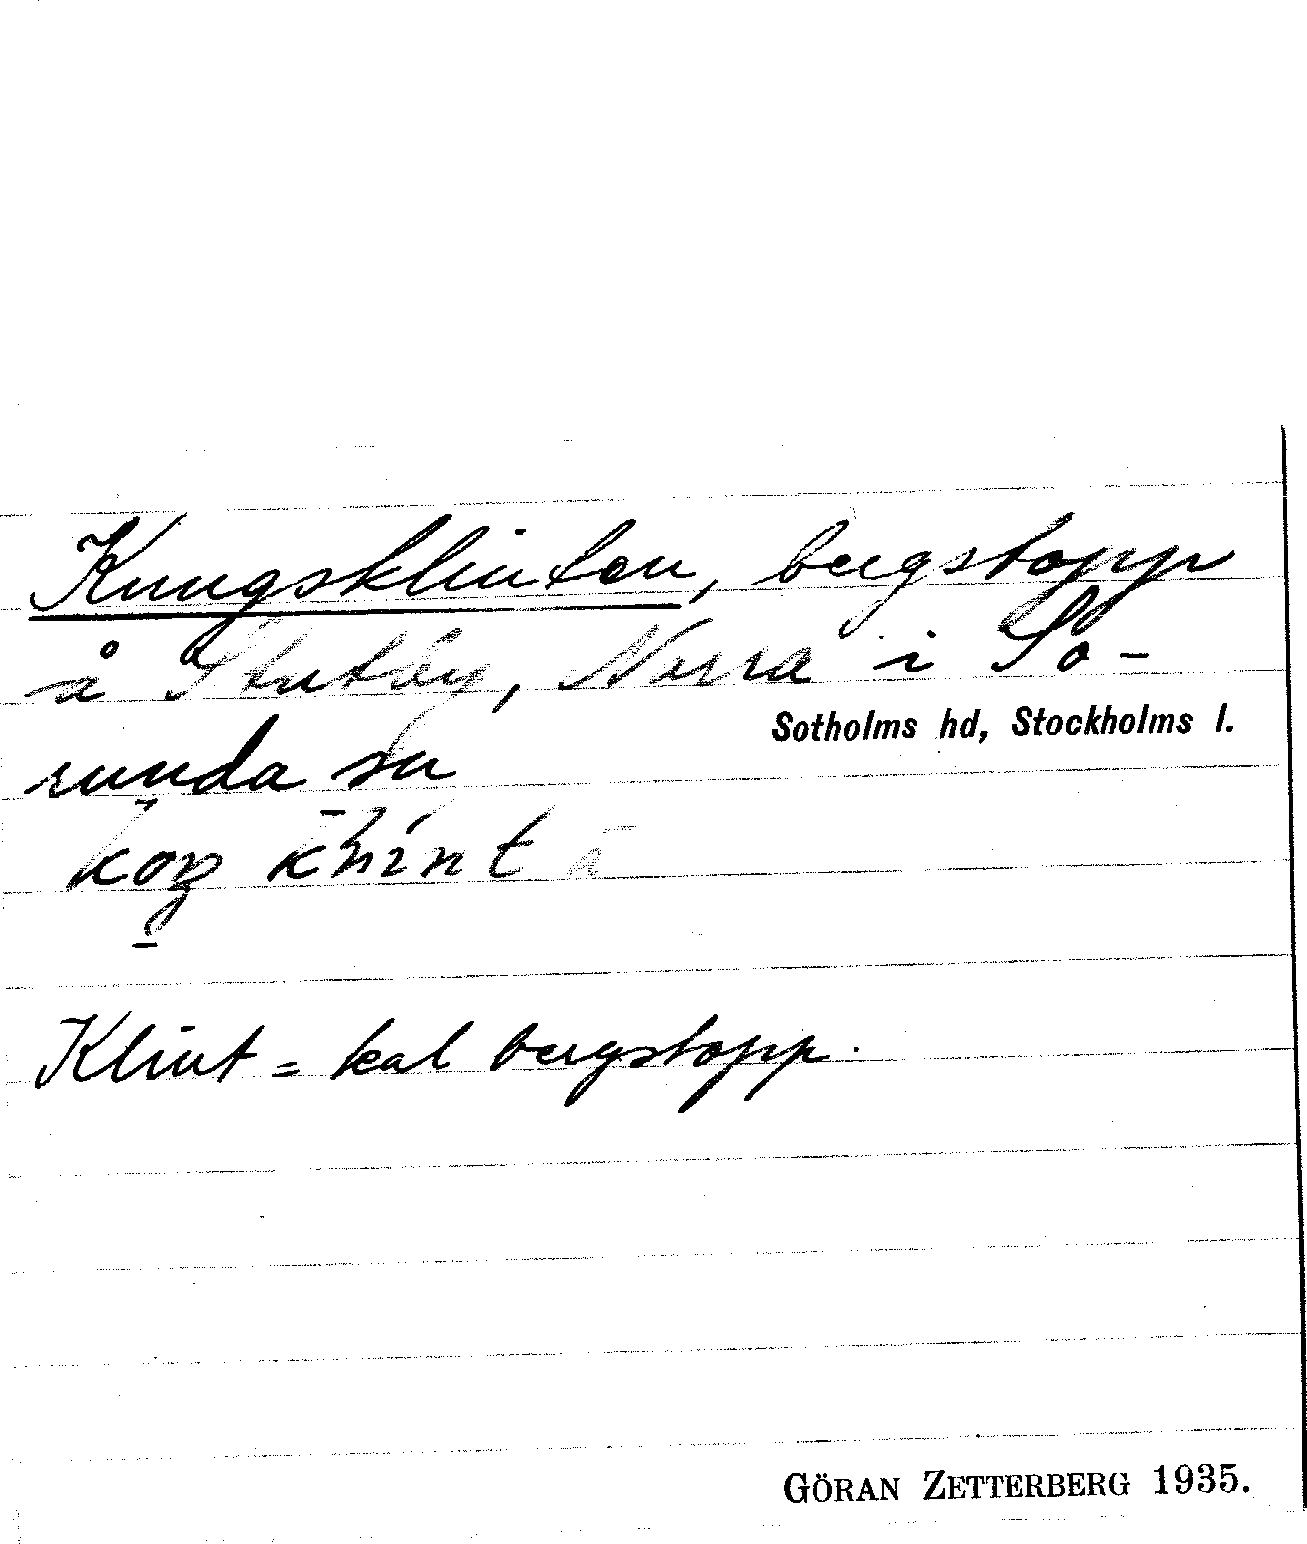 Kungsklinten, bergstopp
å Stutby, Norra i So-
Sotholms hd, Stockholms l.
runda sn
Klint = kal bergstopp.
GÖRAN ZETTERBERG 1935.